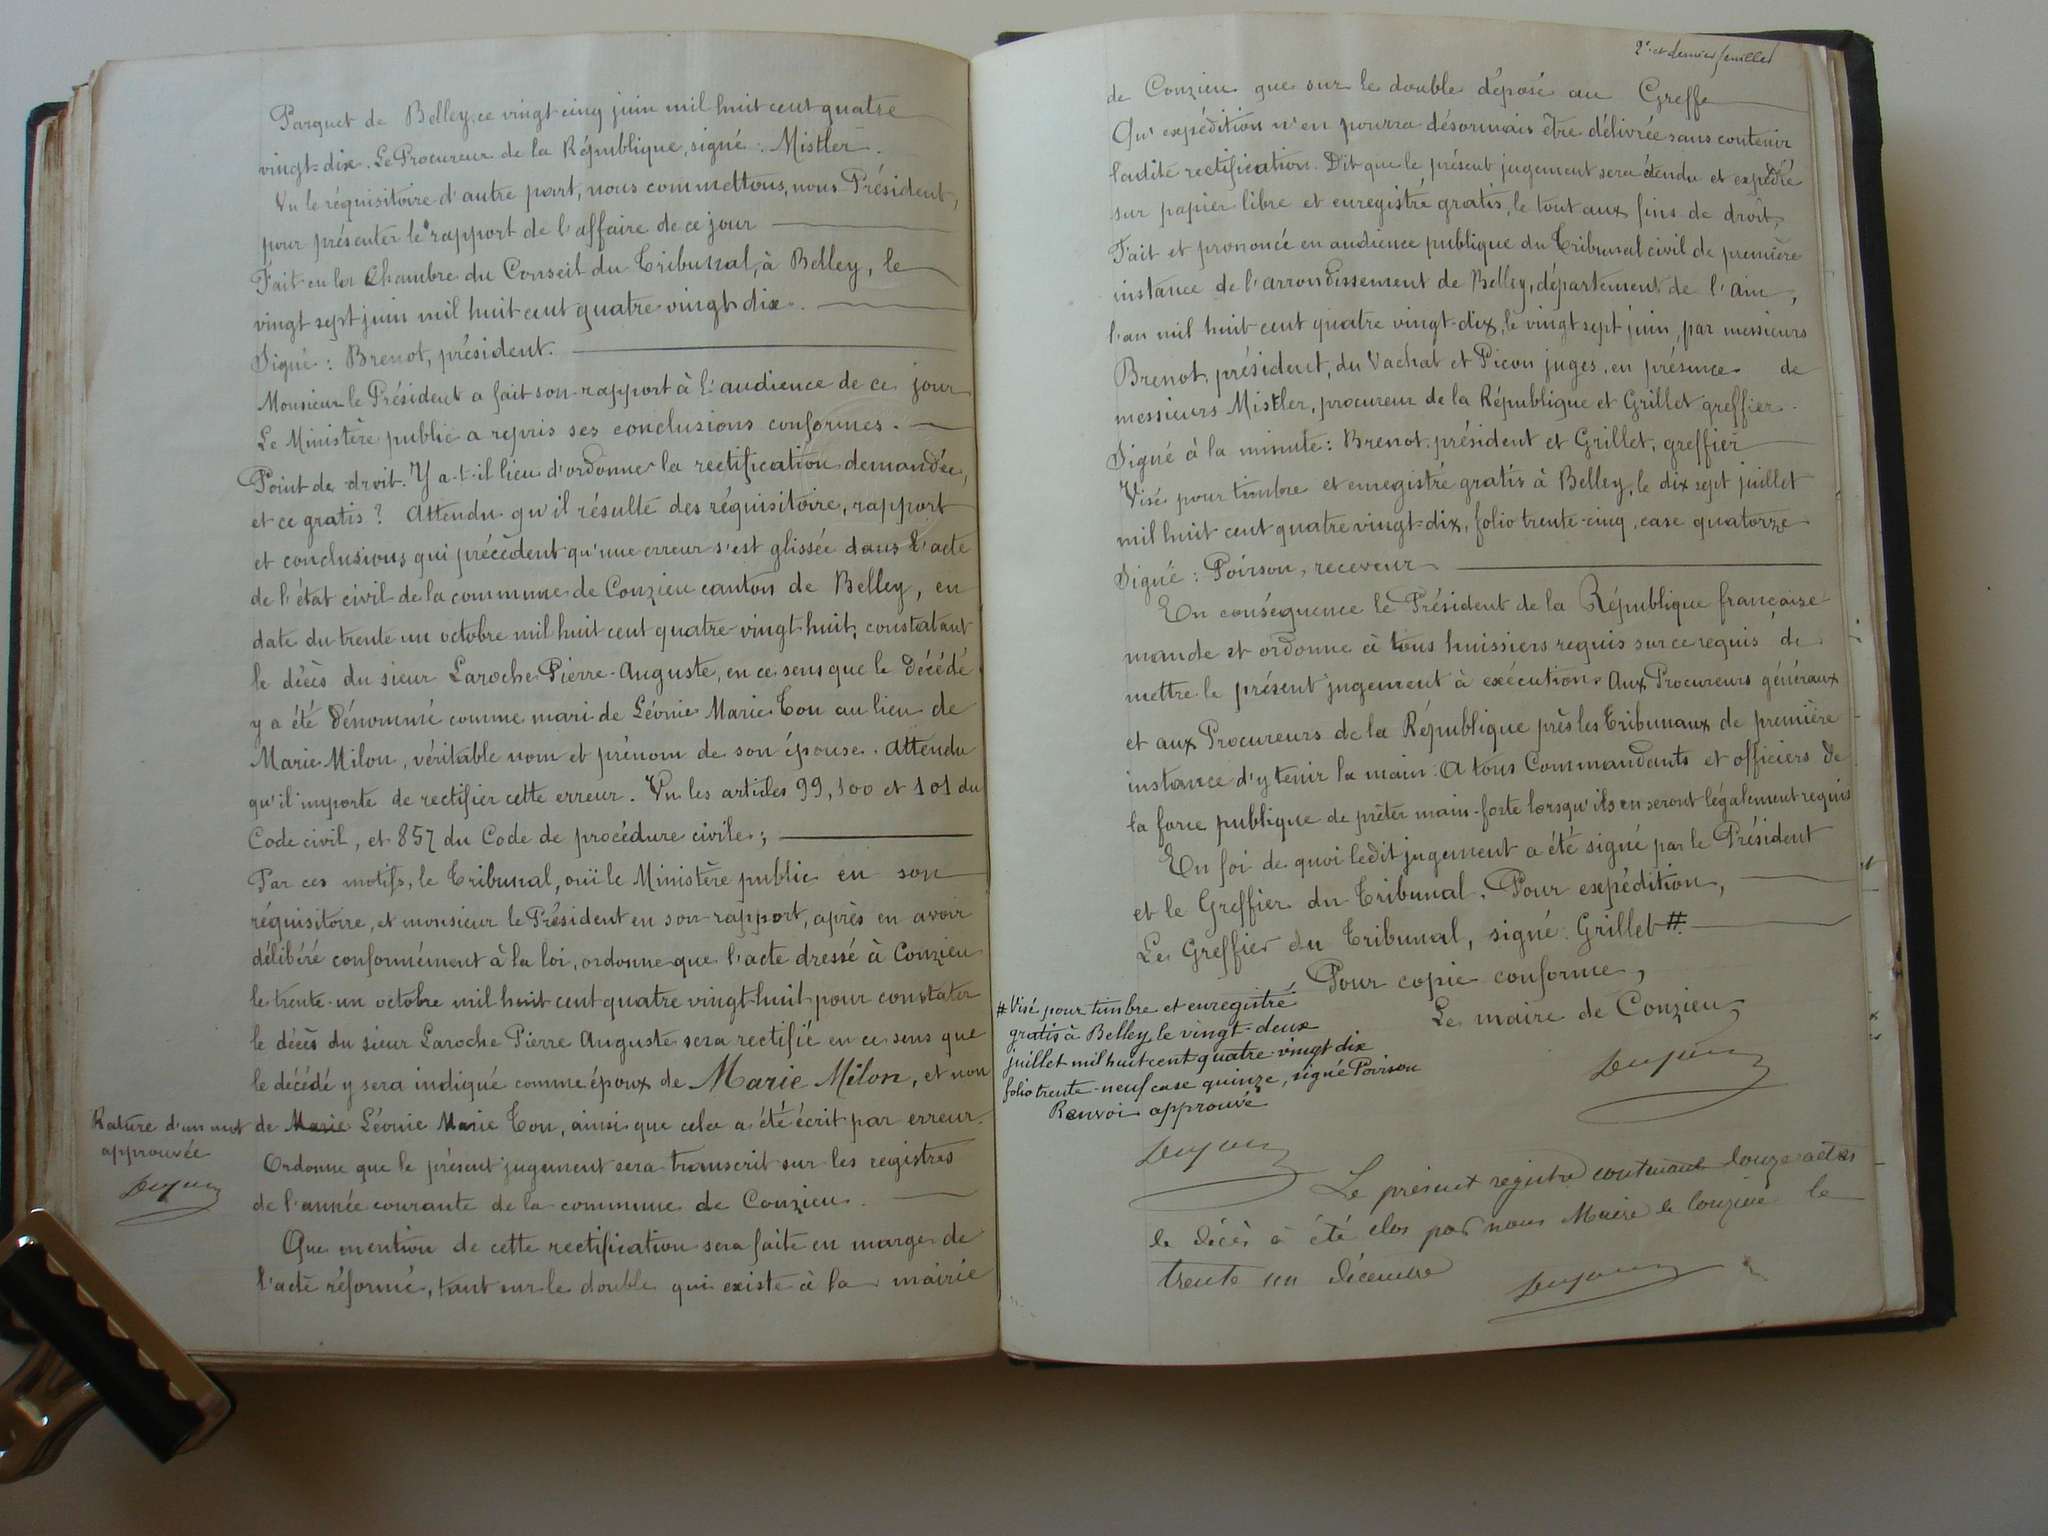 Parquet de Belley, ce vingt-cinq juin mil huit cent quatre
vingt-dix. Le Procureur de la République, signé : Mistler.
Vu le réquisitoire d'autre part, nous commettons, nous Président,
pour présenter le rapport de l'affaire de ce jour
Fait en la Chambre du Conseil du Tribunal, à Belley, le
vingt sept juin mil huit cent quatre vingt dix.
Signé : Brenot, président.
Monsieur le Président a fait son rapport à l'audience de ce jour
Le Ministère public a repris ses conclusions conformes.
Point de droit. Y a-t-il lieu d'ordonner la rectification demandée,
et ce gratis ? Attendu qu'il résulte des réquisitoire, rapport
et conclusions qui précèdent qu'une erreur s'est glissée dans l'acte
de l'état civil de la commune de Conzieu canton de Belley, en
date du trente un octobre mil huit cent quatre-vingt huit, constatant
le décès du sieur Laroche Pierre-Auguste, en ce sens que le décédé
y a été dénommé comme mari de Léonie Marie Tou au lieu de
Marie Milon, véritable nom et prénom de son épouse. Attendu
qu'il importe de rectifier cette erreur. Vu les articles 99, 100 et 101 du
Code civil, et 857 du Code de procédure civile ;
Par ces motifs, le Tribunal, ouï le Ministère public en son
réquisitoire, et monsieur le Président en son rapport, après en avoir
délibéré conformément à la loi, ordonne que l'acte dressé à Conzieu
le trente-un octobre mil huit cent quatre vingt-huit pour constater
le décès du sieur Laroche Pierre Auguste sera rectifié en ce sens que
le décédé y sera indiqué comme époux de Marie Milon, et non
de Marie Léonie Marie Tou, ainsi que cela a été écrit par erreur.
Ordonne que le présent jugement sera transcrit sur les registres
de l'année courante de la commune de Conzieu.
Que mention de cette rectification sera faite en marge de
l'acte réformé, tant sur le double qui existe à la mairie
Rature d'un mot
approuvée
2e et dernier feuillet
de Conzieu que sur le double déposé au Greffe
Qu'expédition n'en pourra désormais être délivrée sans contenir
ladite rectification. Dit que le présent jugement sera étendu et expédié
sur papier libre et enregistré gratis, le tout aux fins de droit,
Fait et prononcé en audience publique du Tribunal civil de première
instance de l'arrondissement de Belley, département de l'ain,
l'an mil huit cent quatre vingt-dix, le vingt sept juin, par messieurs
Brenot, président, du Vachat et Picon juges, en présence de
messieurs Mistler, procureur de la République et Grillet greffier.
Signé à la minute : Brenot, président et Grillet, greffier
Visé pour timbre et enregistré gratis à Belley, le dix sept juillet
mil huit cent quatre vingt-dix, folio trente-cinq, case quatorze
Signé : Poirson, receveur
En conséquence le Président de la République française
mande et ordonne à tous huissiers requis sur ce requis de
mettre le présent jugement à exécution. Aux Procureurs généraux
et aux Procureurs de la République près les Tribunaux de première
instance d'y tenir la main. A tous Commandants et officiers de
la force publique de prêter main-forte lorsqu'ils en seront légalement requis
En foi de quoi ledit jugement a été signé par le Président
et le Greffier du Tribunal. Pour expédition,
Le Greffier du Tribunal, signé : Grillet #.
Pour copie conforme,
Le maire de Conzieu,
# Visé pour timbre et enregistré
gratis à Belley le vingt-deux
juillet mil huit cent quatre-vingt dix
folio trente-neuf case quinze, signé Poirson
Renvoi approuvé
Le présent registre contenant douze actes
de décès à été clos par nous Maire de Conzieu le
trente un décembre